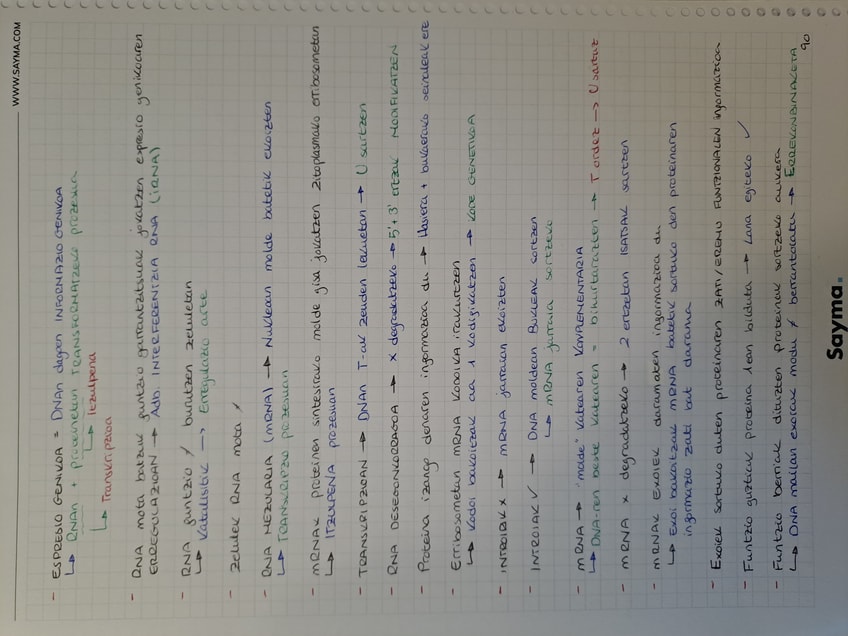 WWW.SAYMA.COM
- ESPRESIO GENIKOA = DNAn dagoen INFORMAZIO GENIKOA
↳ RNAn + proteinetan TRANSFORMATZEKO prozesua
↳ Itzulpena
↳ Transkripzioa
- RNA mota batzuk funtzio garrantzitsuak jokatzen expresio genikoaren
ERREGULAZIOAN → Adb. INTERFERENTZIA RNA (iRNA)
- RNA funtzio ≠ burutzen zeluletan
↳ Katalisitik → Erregulazio arte
- Zelulek RNA mota ≠
- RNA MEZULARIA (mRNA) → Nukleoan molde batetik ekoizten
↳ TRANSKRIPZIO prozesuan
- mRNAk proteinen sintesirako molde gisa jokatzen zitoplasmako erribosometan
↳ ITZULPENA prozesuan
- TRANSKRIPZIOAN → DNAn T-ak zeuden lekuetan → U sartzen
- RNA DESEGONKORRAGOA → x degradatzeko → 5' + 3' ertzak MODIFIKATZEN
- Proteina izango denaren informazioa du → Hasiera + bukaerako seinaleak ere
- Erribosometan mRNA KODOIKA irakurtzen
↳ Kodoi bakoitzak aa 1 kodifikatzen → KODE GENETIKOA
- INTROIRIK x → mRNA jarraian ekoizten
- INTROIAK ✓ → DNA moldean BUKLEAK sortzen
↳ mRNA jarraia sortzeko
- mRNA → "molde" katearen KONPLEMENTARIA
↳ DNA-ren beste katearen = bihurtaraziten → T ordez → U sartuz
- mRNA x degradatzeko → 2 ertzetan ISATSAK sartzen
- mRNAK EXOIEK daramaten informazioa du
↳ Exoi bakoitzak mRNA batetik sortuko den proteinaren
informazio zati bat darama
- Exoiek sortuko duten proteinaren ZATI/EREMU FUNTZIONALEN informazioa
- Funtzio guztiak proteina 1ean bilduta → Lana egiteko ✓
- Funtzio berriak dituzten proteinak sortzeko aukera
↳ DNA mailan exoiak modu ≠ berrantolatu → ERREKONBINAKETA
90
Sayma.